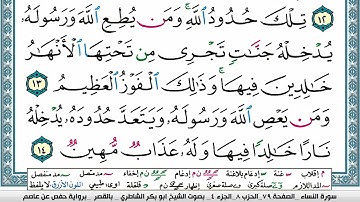 تِلْكَ حُدُودُ ٱللَّهِ ۚ وَمَن يُطِعِ ٱللَّهَ وَرَسُولَهُۥ ١٢
يُدْخِلْهُ جَنَّٰتٍ تَجْرِى مِن تَحْتِهَا ٱلْأَنْهَٰرُ
خَٰلِدِينَ فِيهَا ۚ وَذَٰلِكَ ٱلْفَوْزُ ٱلْعَظِيمُ ١٣
وَمَن يَعْصِ ٱللَّهَ وَرَسُولَهُۥ وَيَتَعَدَّ حُدُودَهُۥ يُدْخِلْهُ
نَارًا خَٰلِدًا فِيهَا وَلَهُۥ عَذَابٌ مُّهِينٌ ١٤
سورة النساء الصفحة ٧٩ الحزب ٨ الجزء ٤ بصوت الشيخ أبو بكر الشاطري بالقصر برواية حفص عن عاصم